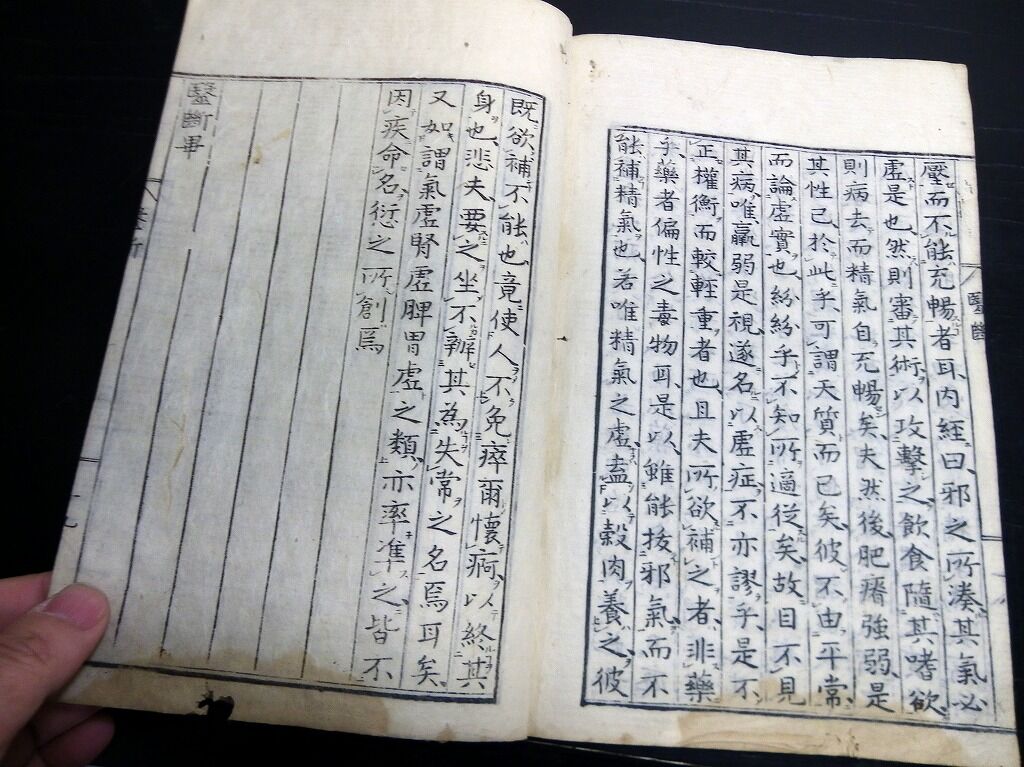 壓而不能充暢者耳、内經曰、邪之所湊、其氣必
虚是也、然則審其術以攻擊之、飲食隨其嗜欲、
則病去而精氣自充暢矣、夫然後肥瘠強弱是
其性已、於此乎可謂天質而已矣、彼不由平常、
而論虚實也、紛紛乎不知所適從矣、故目不見
其病、唯羸弱是視、遂名以虚症、不亦謬乎、是不
正權衡而較輕重者也、且夫所欲補之者、非藥
乎、藥者偏性之毒物耳、是以雖能抜邪氣、而不
能補精氣也、若唯精氣之虚、盍以穀肉養之、彼
醫斷
既欲補不能也、竟使人不免瘁爾懷痾、以終其
身也、悲夫、要之坐不辨其為失常之名焉耳矣、
又如謂氣虚腎虚脾胃虚之類、亦率準之、皆不
因疾命名、衍之所創焉
醫斷畢